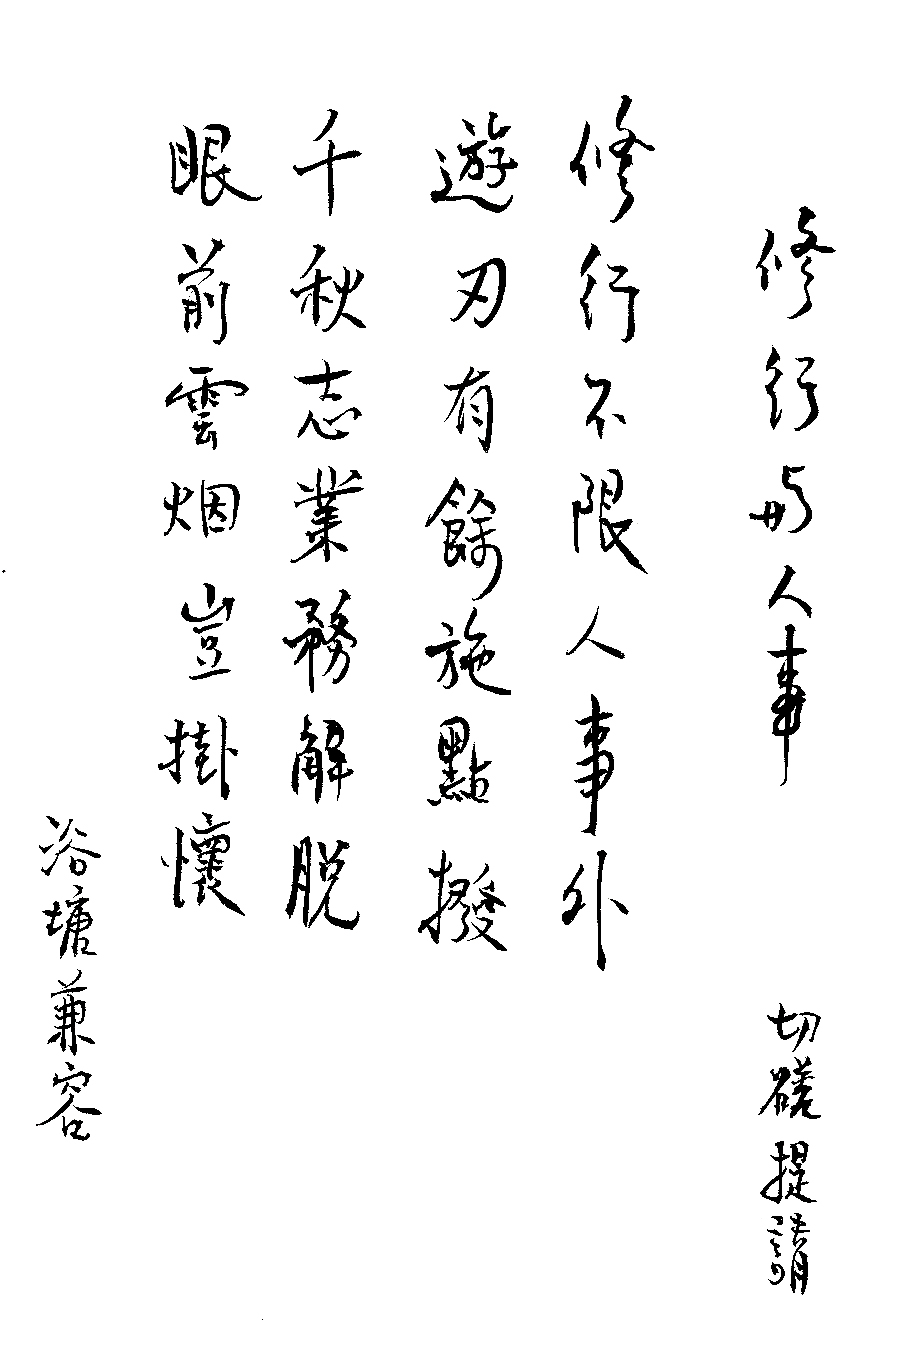 修行與人事
切磋提請
修行不限人事外
遊刃有餘施點撥
千秋志業務解脫
眼前雲烟豈掛懷
浴塘兼容